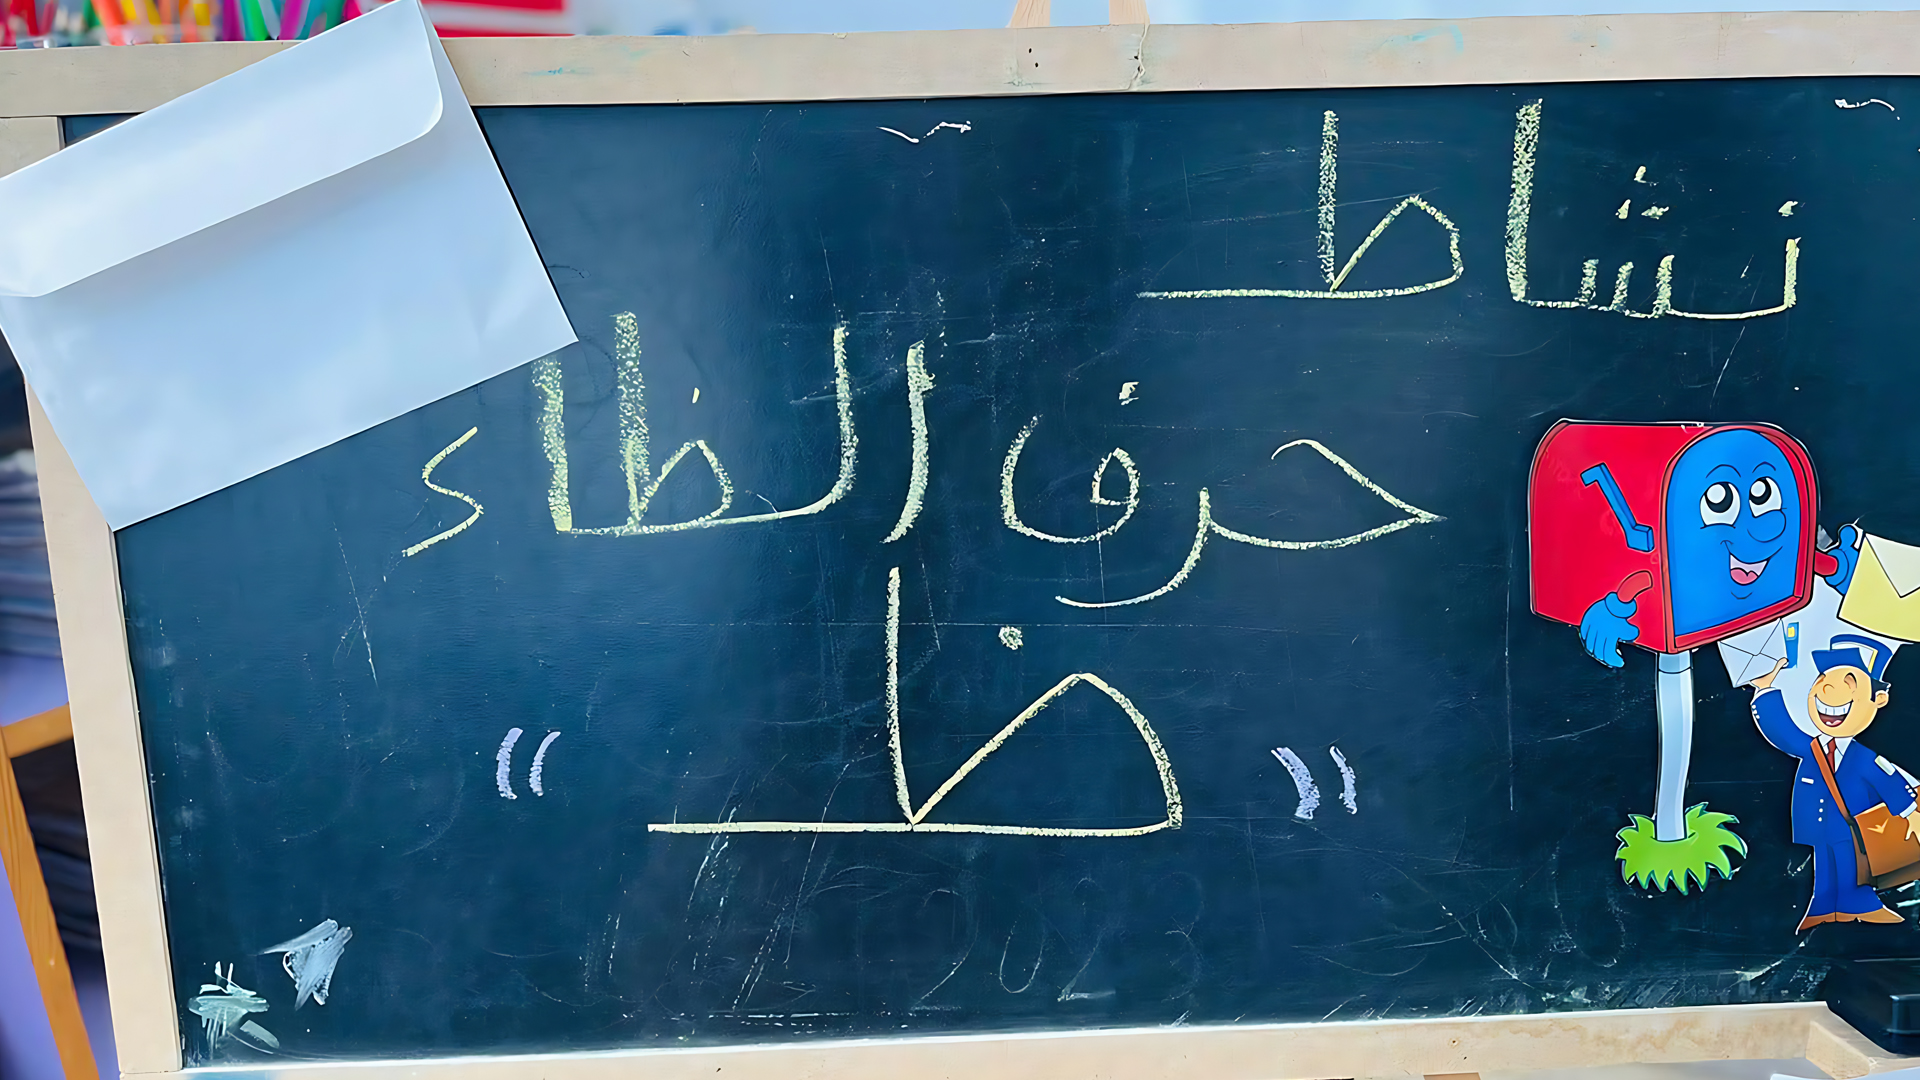 نشاط
حرف الظاء
"ظ"